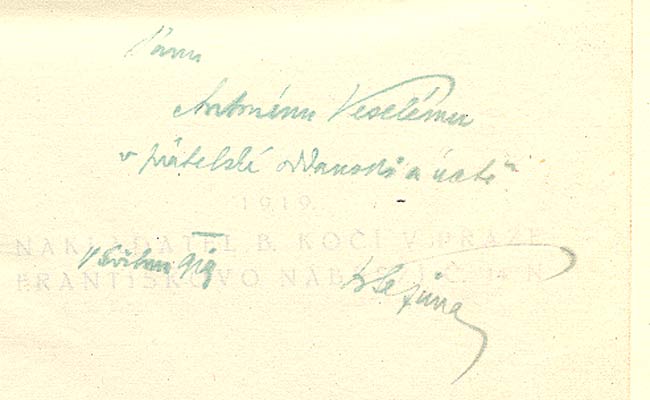 Pánu
Antonínu Veselému
v přátelské oddanosti a úctě
1919.
NAKLADATEL B. KOČÍ V PRAZE
FRANTIŠKOVO NÁBŘEŽÍ Č. 14 N.
V květnu 919